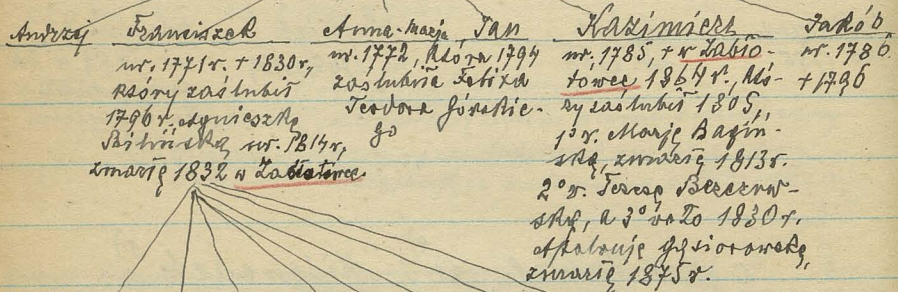 Andrzej
Franciszek
ur. 1771 r. + 1830 r.,
który zaślubił
1796 r. Agnieszkę
Bilińską ur. 1814 r.,
zmarłę 1832 w Zabłotowce
Anna-Marja
ur. 1772, która 1794
zaślubiła Feliksa
Teodora Górskie-
go
Jan
Kazimierz
ur. 1785, + w Zabło-
towce 1864 r., któ-
ry zaślubił 1805,
1º v. Marję Bagiń-
ską, zmarłę 1813 r.
2º v. Teresę
ską, a 3º voto 1830 r.
Apolonję Gąsiorowską,
zmarłę 1875 r.
Jakób
ur. 1786
+ 1796